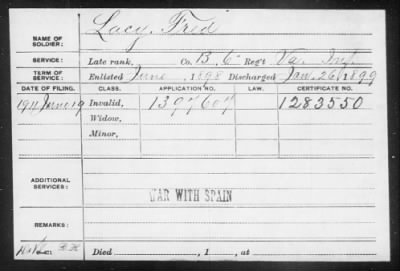 NAME OF SOLDIER: Lacy, Fred
SERVICE: Late rank, Co. B, 6" Reg't Va. Inf.
TERM OF SERVICE: Enlisted June, 1898 Discharged Jan. 26, 1899
DATE OF FILING. CLASS. APPLICATION NO. LAW. CERTIFICATE NO.
1911 June 19 Invalid, 1397607 1283550
Widow,
Minor,
ADDITIONAL SERVICES:
WAR WITH SPAIN
REMARKS:
Died , 1 , at